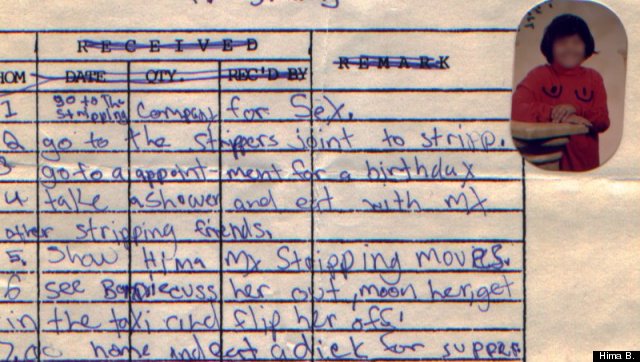 RECEIVED
REMARK
HOM DATE QTY. REC'D BY
1 go to the stripping company for Sex.
2 go to the strippers joint to stripp.
3 go to a appointment for a birthday
4 take a shower and eat with my
after stripping friends.
5. Show Hima my Stripping moves.
6 see cuss her out, moon her, get
in the taxi and flip her off.
home and eat a for supper
Hima B.